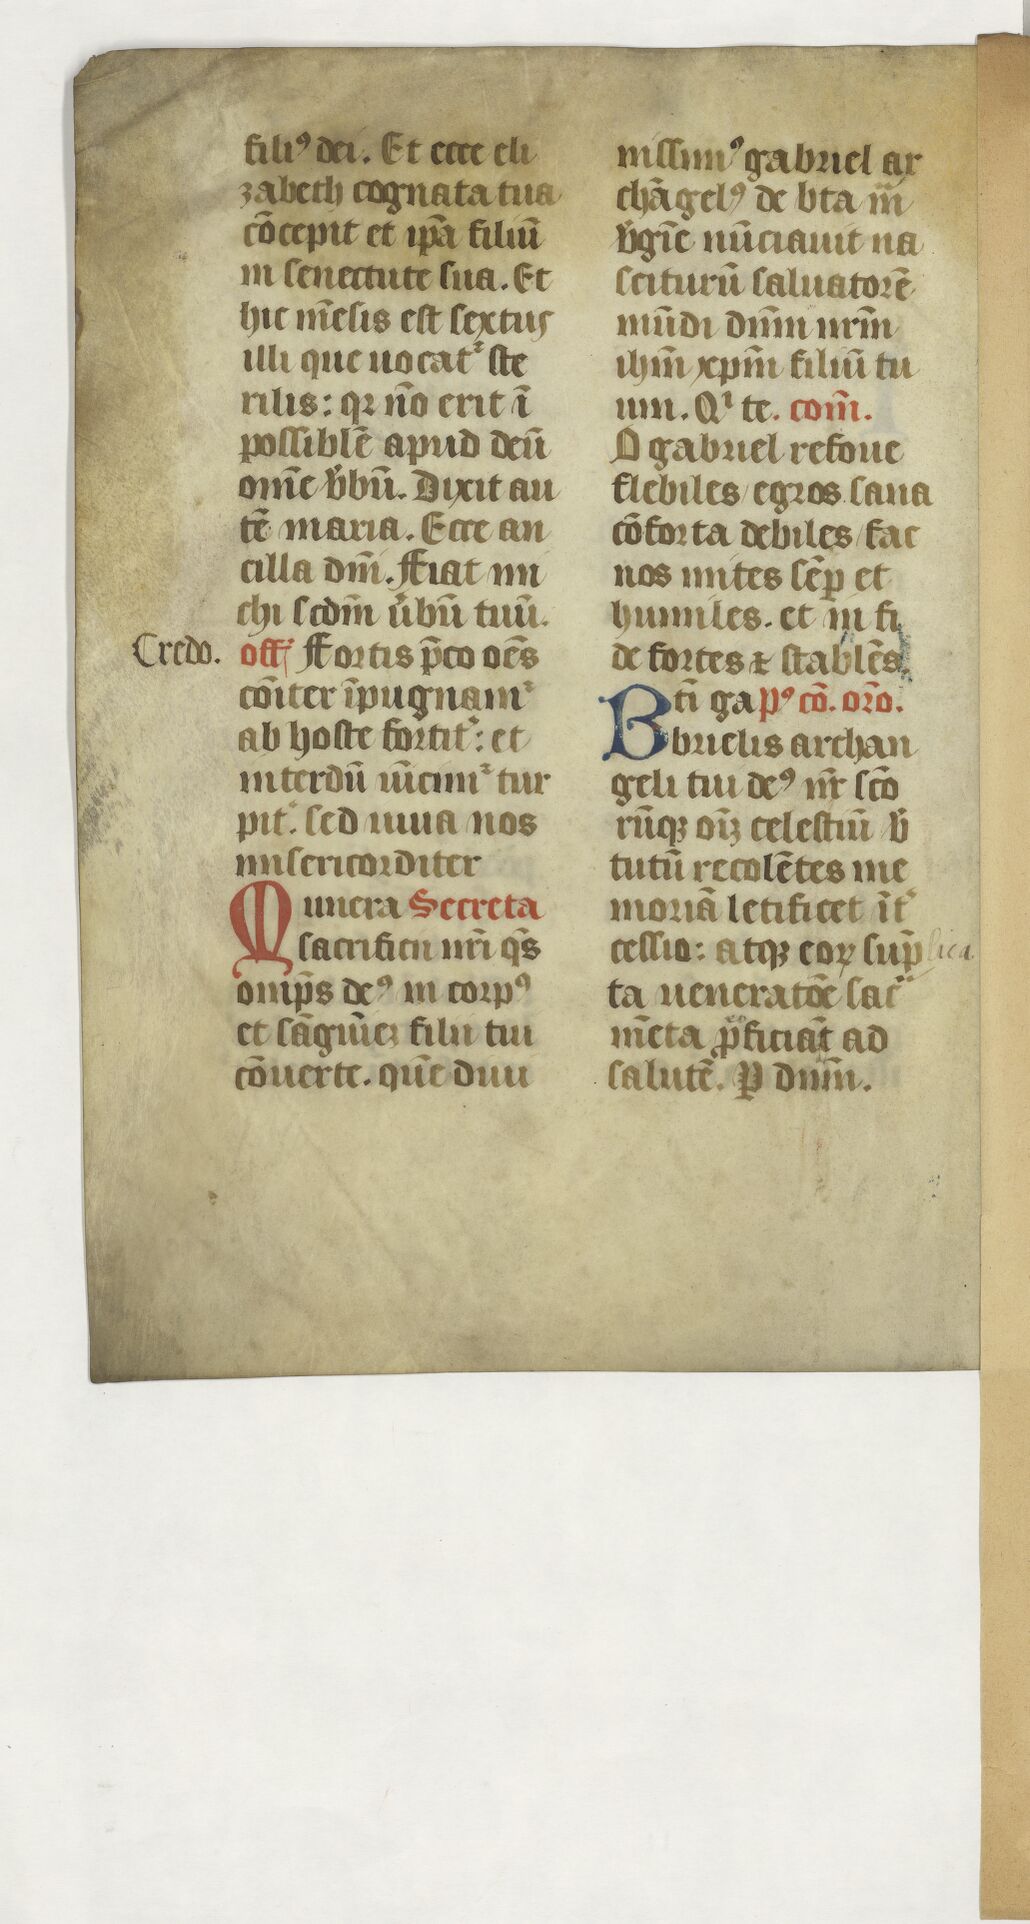 filiꝰ dei. Et ecce eli
zabeth cognata tua
cōcepit et ip̄a filiū
in senectute sua. Et
hic mēsis est sextus
illi que uocat᷑ ste
rilis: qꝛ nō erit ī
possiblē apud deū
om̄e v̓bū. Dixit au
tē maria. Ecce an
cilla dm̄i. ffiat mi
chi scdm̄ v̓bū tuū.
Credo.
off̓ ffortis p̄co oēs
cōīter īpugnam᷑
ab hoste fortit᷑: et
interdū uīcim᷑ tur
pit᷑. sed iuua nos
misericorditer
Munera Secreta
sacrificii nr̄i qs̄
omp̄s deꝰ in corpꝰ
et sāguīeꝫ filii tui
cōuerte. quē diui
nissimꝰ gabriel ar
chāgelꝰ de bta m̄
v̓gīe nūciauit na
sciturū saluatorē
mūdi dnm̄ nrm̄
ihm̄ xpm̄ filiū tu
um. Qⁱ te. com̄.
O gabriel refoue
flebiles egros sana
cōforta debiles fac
nos mites sēp et
humiles. et in fi
de fortes ⁊ stablēs.
Bti̅ ga pꝰ cō. oro̅.
brielis archan
geli tui deꝰ nr̄ scō
rūqꝫ oīꝫ celestiū v̓
tutū recolētes me
moriā letificet īt᷑
cessio: atqꝫ eoꝝ sup̄
lica
ta ueneratōe sac᷑
mēta ꝓficiāt ad
salutē. P dnm̄.